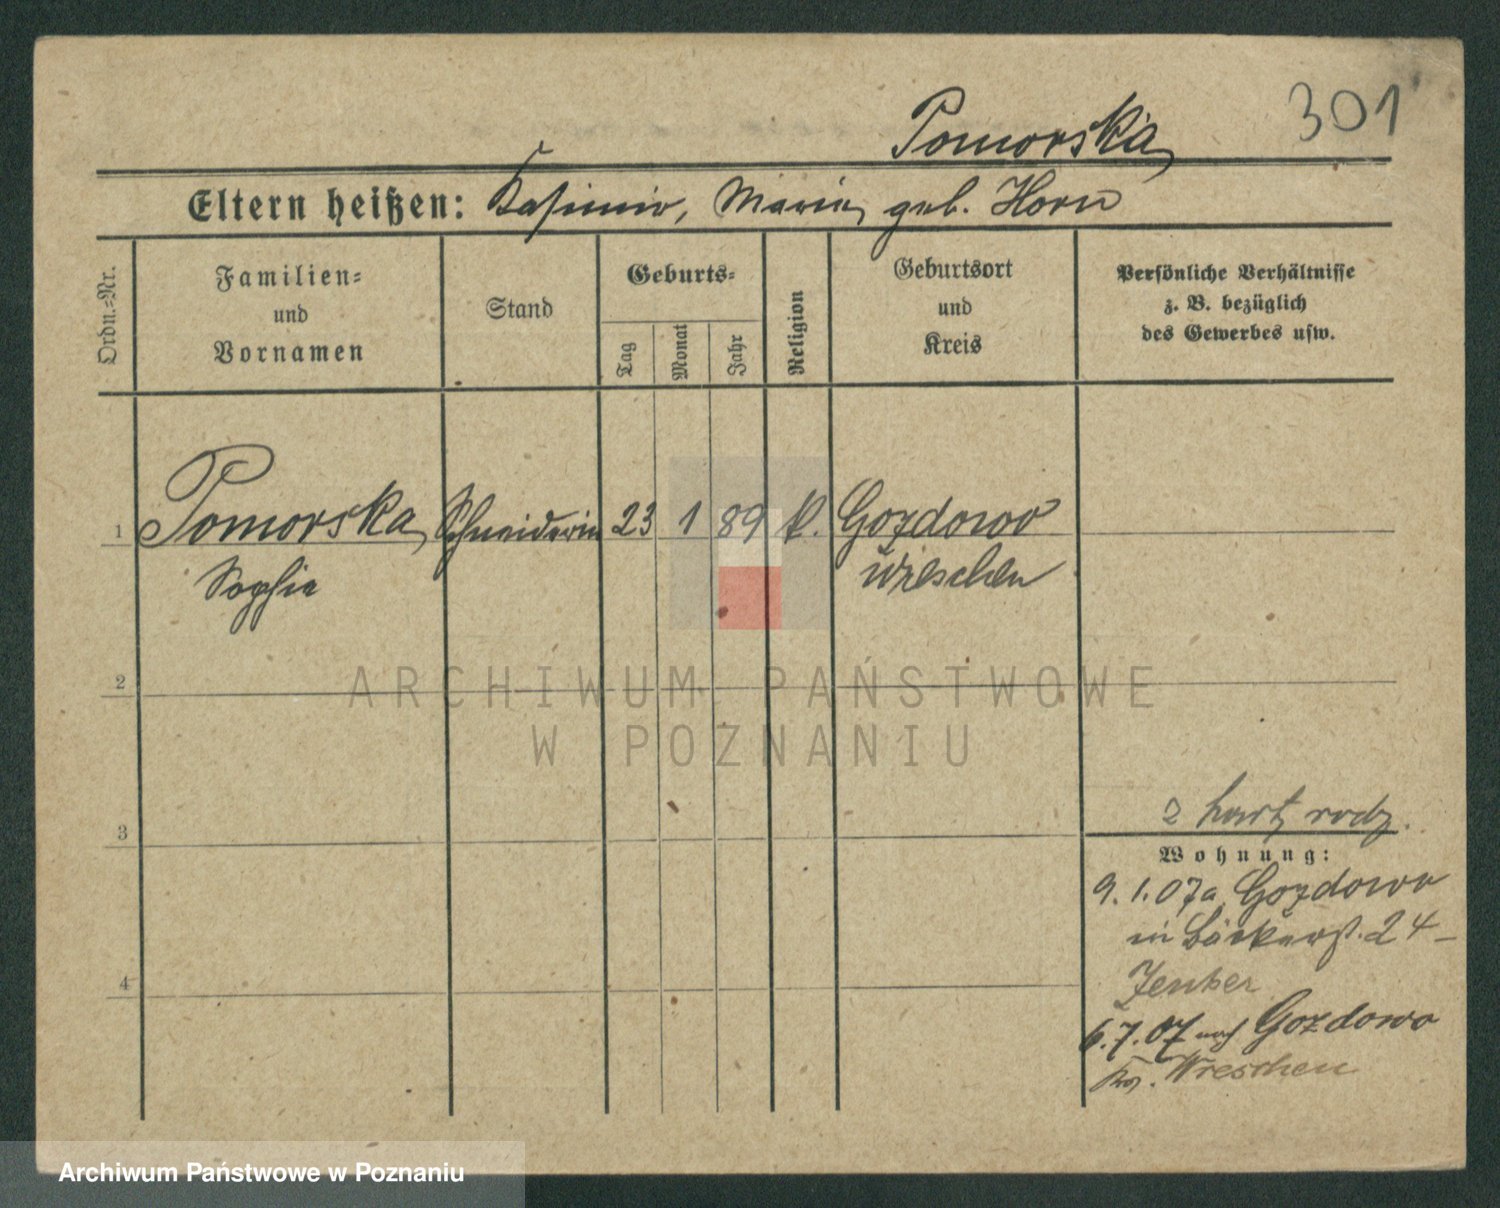 301
Pomorska
Eltern heißen: Kasimir, Maria geb. Horn
Ordn.-Nr.
Familien-
und
Vornamen
Stand
Geburts-
Tag
Monat
Jahr
Religion
Geburtsort
und
Kreis
Persönliche Verhältnisse
z. B. bezüglich
des Gewerbes usw.
1 Pomorska Schneiderin 23 1 89 k. Gozdowo
Sophie Wreschen
2
ARCHIWUM PAŃSTWOWE
W POZNANIU
2 kart rodz.
3
Wohnung:
9.1.07 a. Gozdowo
in Bäckerst. 24 -
4
Zenker
6.7.07 nach Gozdowo
Kr. Wreschen
Archiwum Państwowe w Poznaniu